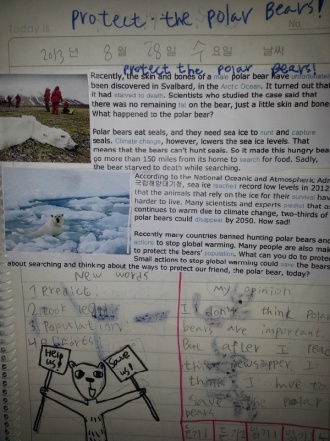 Protect the polar Bears!
Today is
No.
2013 년 8 월 28 일 수 요일 날씨
protect the polar bears!
Recently, the skin and bones of a male polar bear have unfortunately
been discovered in Svalbard, in the Arctic Ocean. It turned out that
it had starved to death. Scientists who studied the case said that
there was no remaining fat on the bear, just a little skin and bone
What happened to the polar bear?
Polar bears eat seals, and they need sea ice to hunt and capture
seals. Climate change, however, lowers the sea ice levels. That
means that the bears can't hunt seals. So it made this hungry bear
go more than 150 miles from its home to search for food. Sadly,
the bear starved to death while searching.
According to the National Oceanic and Atmospheric Adm
국립해양대기청, sea ice reached record low levels in 2012
that the animals that rely on the ice for their survival have
harder to live. Many scientists and experts predict that as
continues to warm due to climate change, two-thirds of
polar bears could disappear by 2050. How sad!
Recently many countries banned hunting polar bears and
actions to stop global warming. Many people are also mak
to protect the bears' population. What can you do to protect
Small actions to stop global warming could save the bears
about searching and thinking about the ways to protect our friend, the polar bear, today?
New words
1 predict
2 took
3 population
4 efforts
Help us!
Save us!
My opinion
I don't think Polar
bears are important.
But after I read
this newspaper I
think I have to
save the polar
bears.